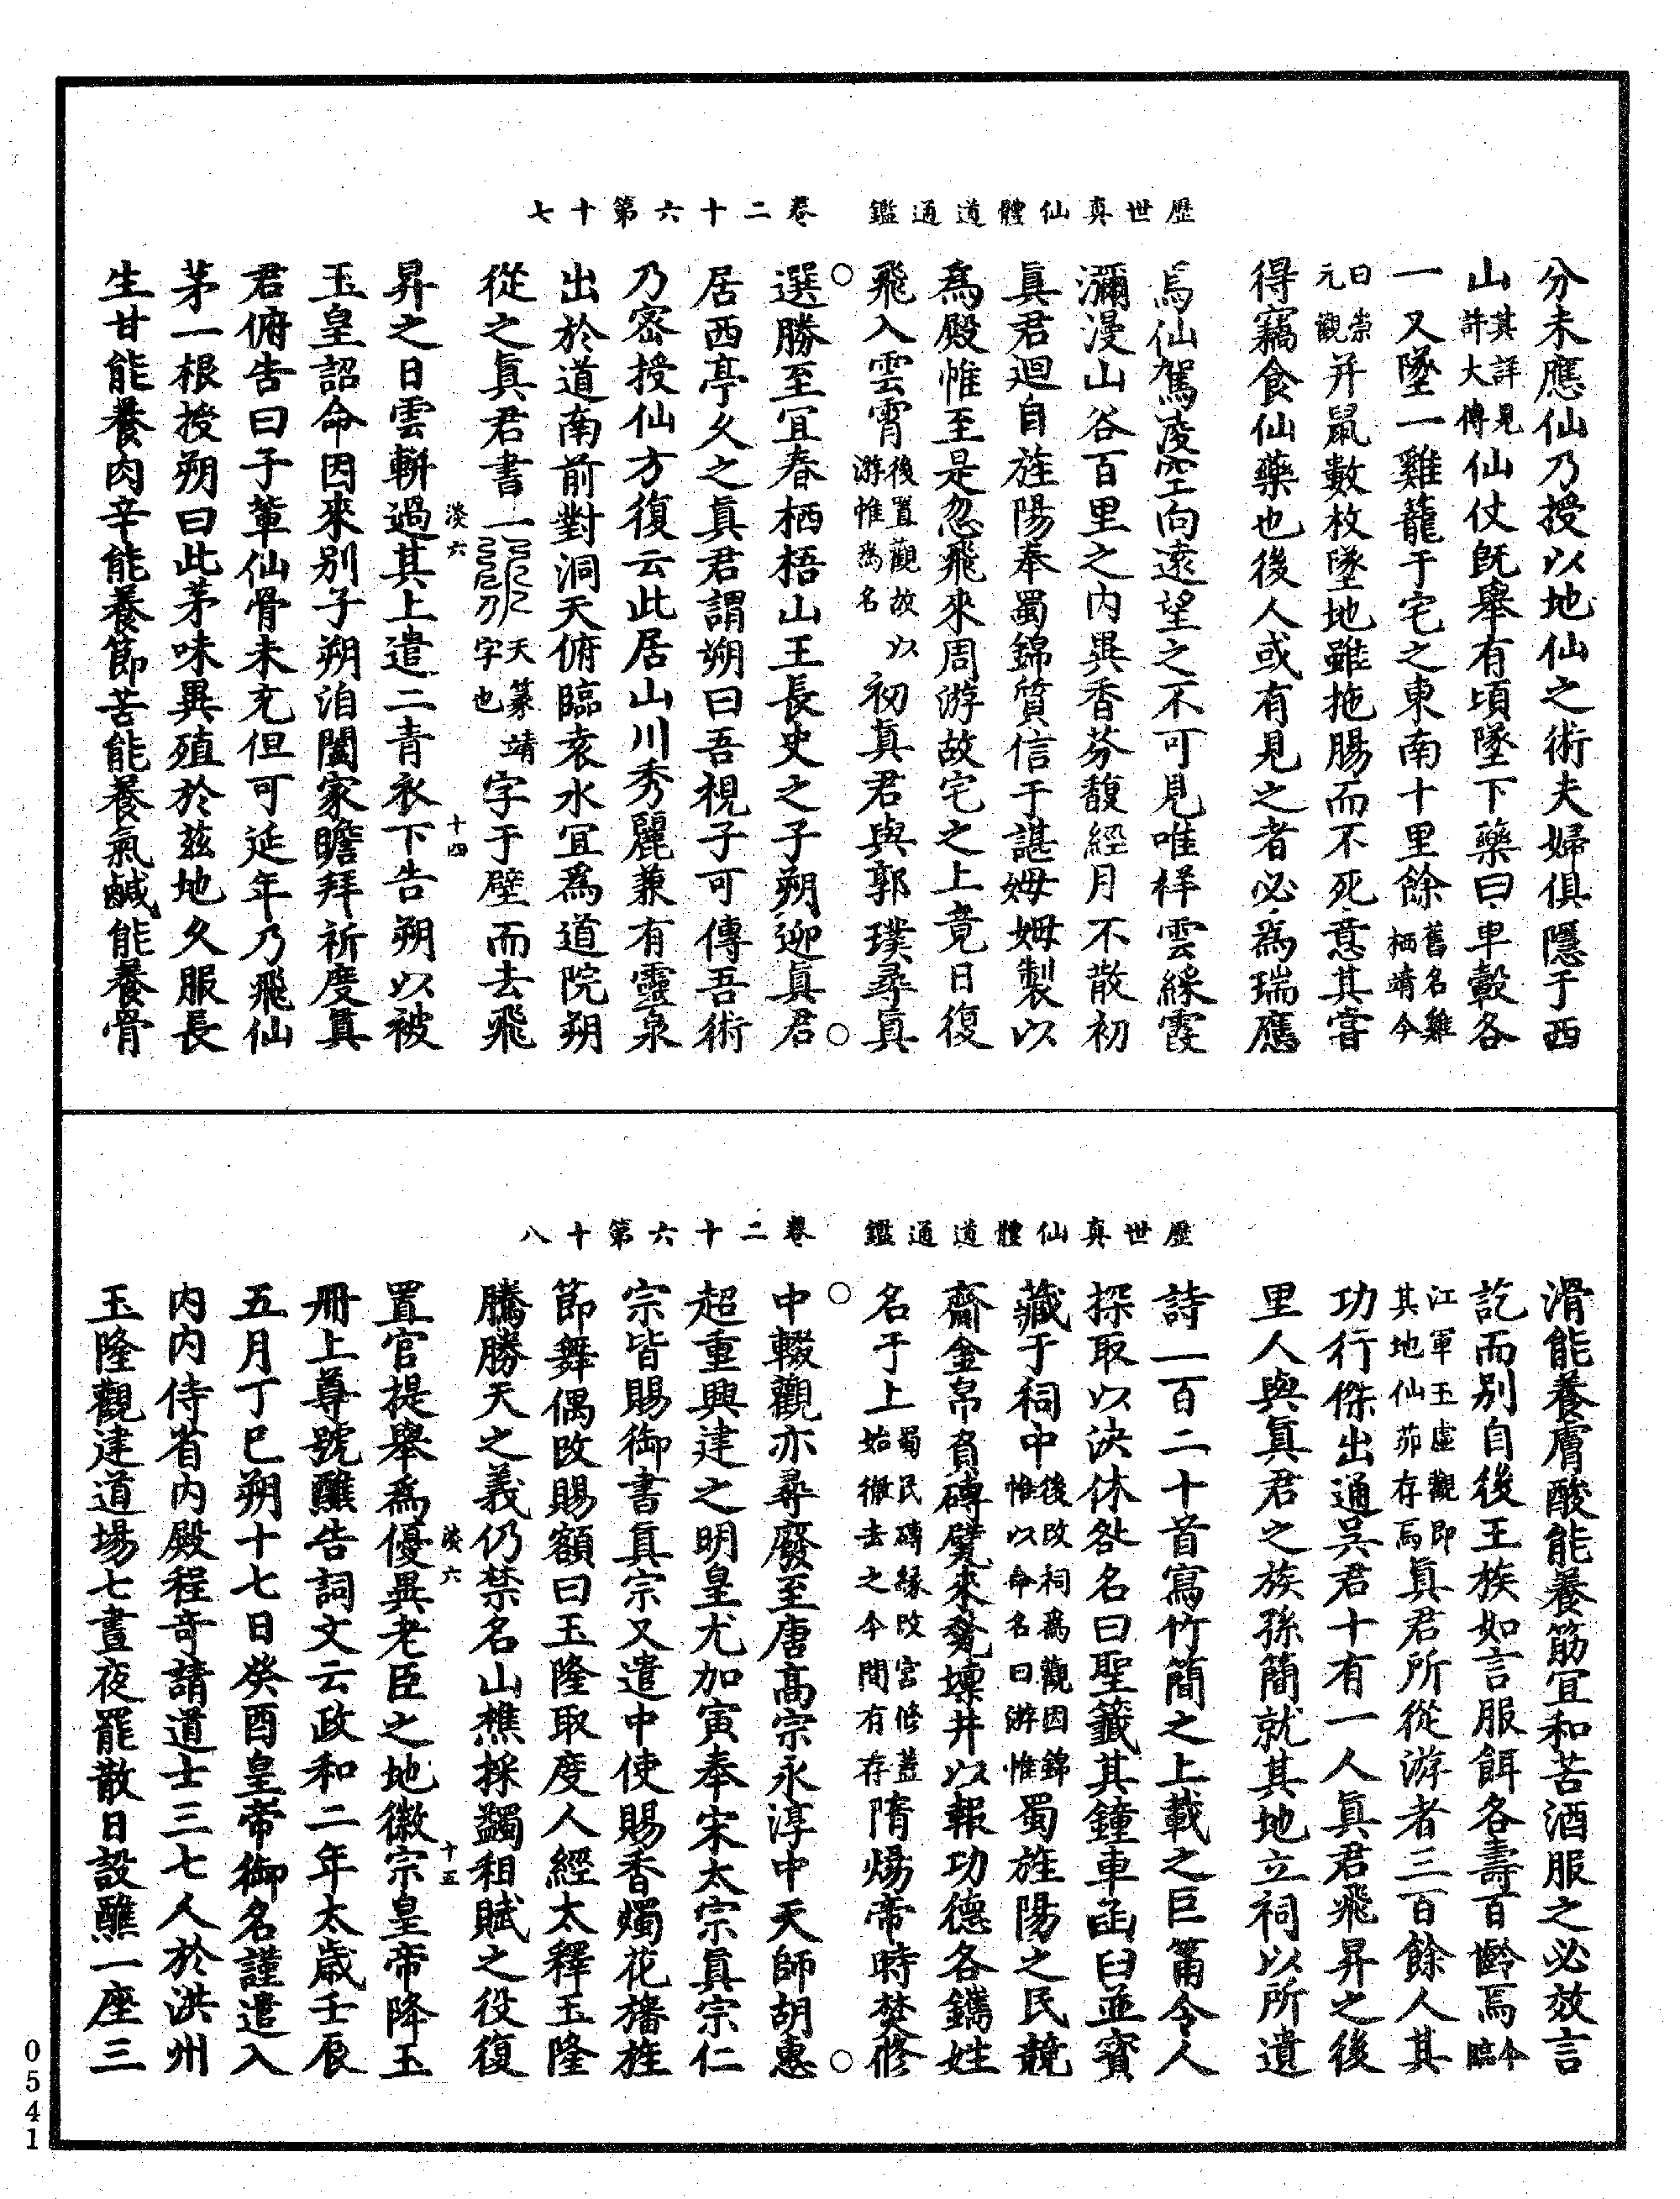 歷世真仙體道通鑑　卷二十六第十七
分未應仙乃授以地仙之術夫婦俱隱于西
山其詳見許大傳仙仗既舉有頃墜下藥臼車轂各
一又墜一雞籠于宅之東南十里餘舊名雞栖靖今
曰崇元觀并鼠數枚墜地雖拖腸而不死意其嘗
得竊食仙藥也後人或有見之者必為瑞應
焉仙駕凌空向遠望之不可見唯祥雲綵霞
瀰漫山谷百里之內異香芬馥經月不散初
真君迴自旌陽奉蜀錦質信于諶姆姆製以
為殿帷至是忽飛來周游故宅之上竟日復
飛入雲霄後置觀故以游帷為名初真君與郭璞尋真
選勝至宜春栖梧山王長史之子朔迎真君
居西亭久之真君謂朔曰吾視子可傳吾術
乃密授仙方復云此居山川秀麗兼有靈泉
出於道南前對洞天俯臨袁水宜為道院朔
從之真君書一天篆靖字也字于壁而去飛
淡六　十四
昇之日雲輧過其上遣二青衣下告朔以被
玉皇詔命因來別子朔洎闔家瞻拜祈度真
君俯告曰子輩仙骨未充但可延年乃飛仙
茅一根授朔曰此茅味異殖於茲地久服長
生甘能養肉辛能養節苦能養氣鹹能養骨
歷世真仙體道通鑑　卷二十六第十八
滑能養膚酸能養筋宜和苦酒服之必效言
訖而別自後王族如言服餌各壽百齡焉今臨
江軍玉虛觀即其地仙茆存焉真君所從游者三百餘人其
功行傑出通吳君十有一人真君飛昇之後
里人與真君之族孫簡就其地立祠以所遺
詩一百二十首寫竹簡之上載之巨筩令人
探取以決休咎名曰聖籤其鐘車函臼並寶
藏于祠中後改祠為觀因錦帷以命名曰游帷蜀旌陽之民競
齎金帛負磚甓來甃壇井以報功德各鐫姓
名于上蜀民磚緣改宮修蓋始徹去之今間有存隋煬帝時焚修
中輟觀亦尋廢至唐高宗永淳中天師胡惠
超重興建之明皇尤加寅奉宋太宗真宗仁
宗皆賜御書真宗又遣中使賜香燭花旛旌
節舞偶改賜額曰玉隆取度人經太釋玉隆
騰勝天之義仍禁名山樵採蠲租賦之役復
淡六　十五
置官提舉為優異老臣之地徽宗皇帝降玉
冊上尊號醮告詞文云政和二年太歲壬辰
五月丁巳朔十七日癸酉皇帝御名謹遣入
內內侍省內殿程奇請道士三七人於洪州
玉隆觀建道場七晝夜罷散日設醮一座三
0541